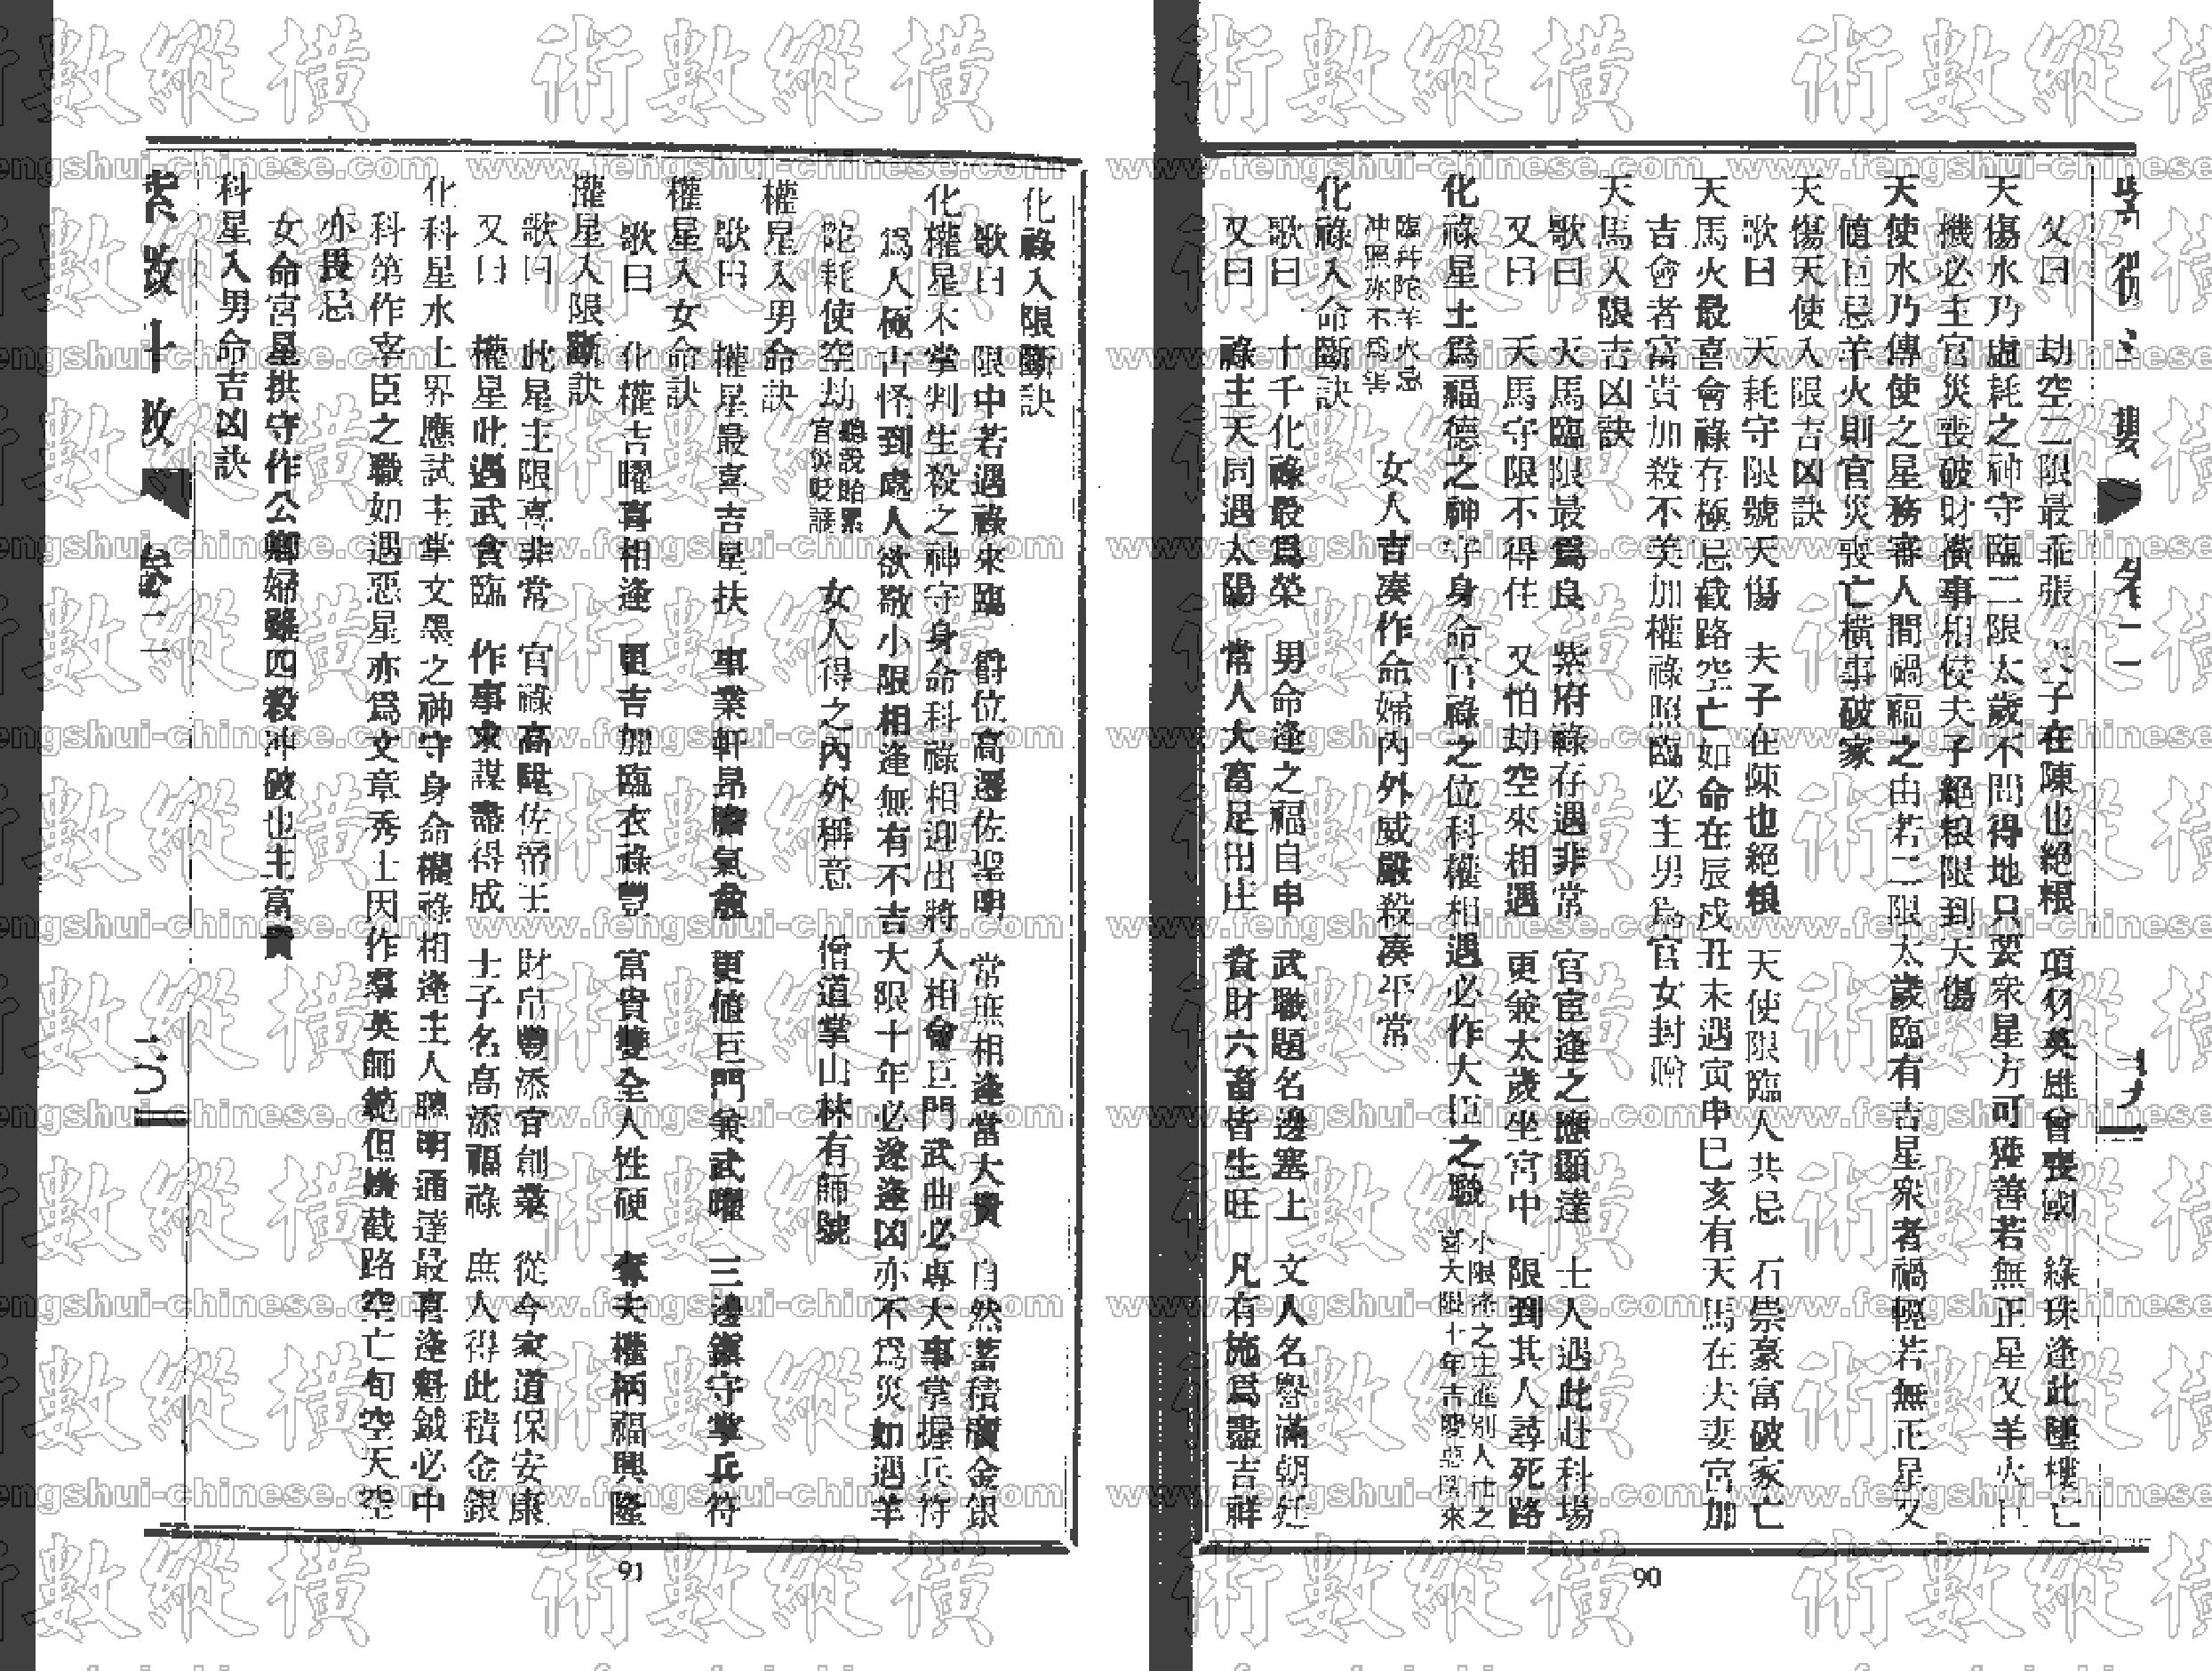 又曰　劫空二限最乖張　夫子在陳也絕糧　項羽英雄曾喪國　綠珠逢此墜樓亡
天傷水乃虛耗之神守臨二限太歲不問得地只要衆星方可獲善若無正星又羊火巨
機必主官災喪破財橫事相侵夫子絕糧限到天傷
天使水乃傳使之星務審人間禍福之由若二限太歲臨有吉星衆者禍輕若無正星又
值巨忌羊火則官災喪亡橫事破家
天傷天使入限吉凶訣
歌曰　天耗守限號天傷　夫子在陳也絕糧　天使限臨人共忌　石崇豪富破家亡
天馬火最喜會祿存極忌截路空亡如命在辰戌丑未遇寅申巳亥有天馬在夫妻宮加
吉會者富貴加殺不美加權祿照臨必主男爲官女封贈
天馬入限吉凶訣
歌曰　天馬臨限最爲良　紫府祿存遇非常　官宦逢之應顯達　士人遇此赴科場
又曰　天馬守限不得住　又怕劫空來相遇　更兼太歲坐宮中　限到其人尋死路
化祿星土爲福德之神守身命官祿之位科權相遇必作大臣之職　小限逢之主進別人仕之
喜大限十年吉慶惡限來
臨并陀羊火忌
冲照亦不爲害　女人吉湊作命婦內外威嚴殺湊平常
化祿入命斷訣
歌曰　十千化祿最爲榮　男命逢之福自申　武職題名邊塞上　文人名譽滿朝廷
又曰　祿主天同遇太陽　常人大富足田庄　資財六畜皆生旺　凡有施爲盡吉祥
90
化祿入限斷訣
歌曰　限中若遇祿來臨　爵位高遷佐聖明　常庶相逢當大貴　自然蓄積廣金銀
化權星木掌判生殺之神守身命科祿相迎出將入相會巨門武曲必專大事掌握兵符
爲人極古怪到處人欲敬小限相逢無有不吉大限十年必遂逢凶亦不爲災如遇羊
陀耗使空劫　聽說貽累
官災貶謫　女人得之內外稱意　僧道掌山林有師號
權星入男命訣
歌曰　權星最喜吉星扶　事業軒昂膽氣麄　更値巨門兼武曜　三邊鎭守掌兵符
權星入女命訣
歌曰　化權吉曜喜相逢　更吉加臨衣祿豐　富貴雙全人性硬　奪夫權柄福興隆
權星入限斷訣
歌曰　此星主限喜非常　官祿高陞佐帝王　財帛豐添官創業　從今家道保安康
又曰　權星此遇武貪臨　作事求謀盡得成　士子名高添福祿　庶人得此積金銀
化科星水上界應試主掌文墨之神守身命權祿相逢主人聰明通達最喜逢魁鉞必中
科第作宰臣之職如遇惡星亦爲文章秀士因作羣英師範但嫌截路空亡旬空天空
亦畏忌
女命宮星拱守作公卿婦雖四殺冲破也主富貴
科星入男命吉凶訣
91